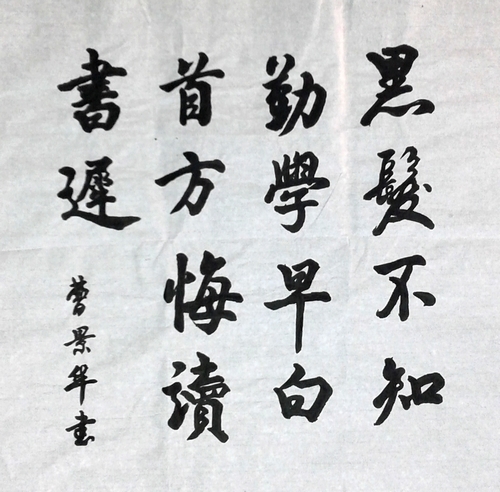 黑髮不知
勤學早白
首方悔讀
書遲
曹景华书